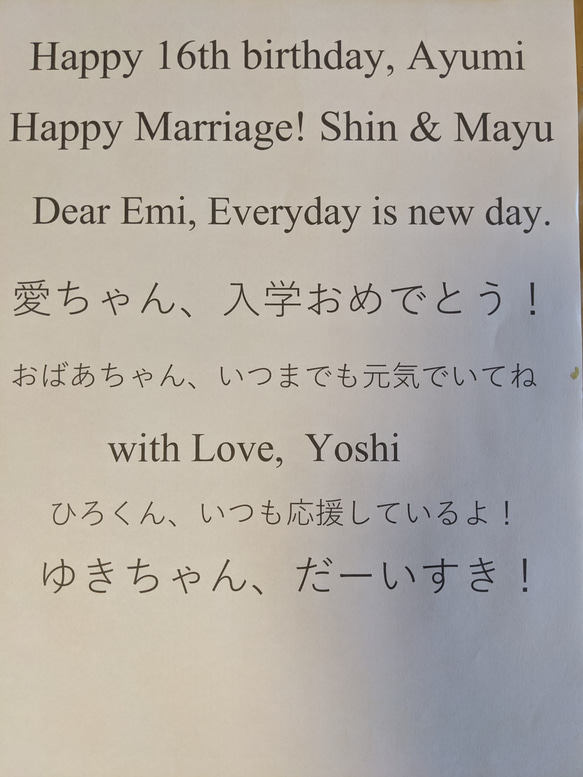 Happy 16th birthday, Ayumi
Happy Marriage! Shin & Mayu
Dear Emi, Everyday is new day.
愛ちゃん、入学おめでとう！
おばあちゃん、いつまでも元気でいてね
with Love,  Yoshi
ひろくん、いつも応援しているよ！
ゆきちゃん、だーいすき！